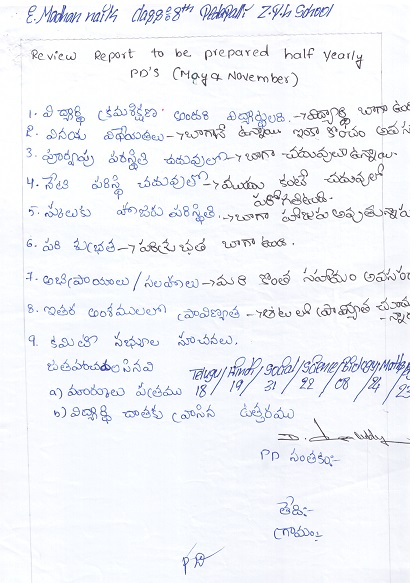 E. Madhan naik class: 8th Pedapalli Z.P.h School
Review Report to be prepared half yearly
PD'S (May & November)
1. విద్యార్థి క్రమశిక్షణ బాగా ఉంది
2. వినయ విధేయతలు → బాగానే ఉన్నాయి ఇంకా కొంచం అవస
3. పూర్వపు పరిస్థితి చదువులో → బాగా చదువుతు ఉన్నాయి.
4. నేటి పరిస్థి చదువులో → కంటే చదువులో
5. హాజరు పరిస్థితి. → బాగా హాజరు అవుతున్నాడు
6. పరి శుభ్రత → పరిశుభ్రత బాగా ఉంది.
7. అభిప్రాయాలు / సలహాలు → మరి కొంత సహాయం అవసరం
8. ఇతర అంశములలో ప్రావిణ్యత → ఆటలలో ప్రావిణ్యత
9. కమిటి సభ్యుల సూచనలు.
జతపరచవలసినవి Telugu / Hindi / Social / Science / Biology / Maths
a) మార్కులు పత్రము 18 / 19 / 31 / 22 / 08 / 24 / 23
b) విద్యార్థి చేతకు వ్రాసిన ఉత్తరము
PD సంతకం:-
తేది:-
గ్రామం:-
PD